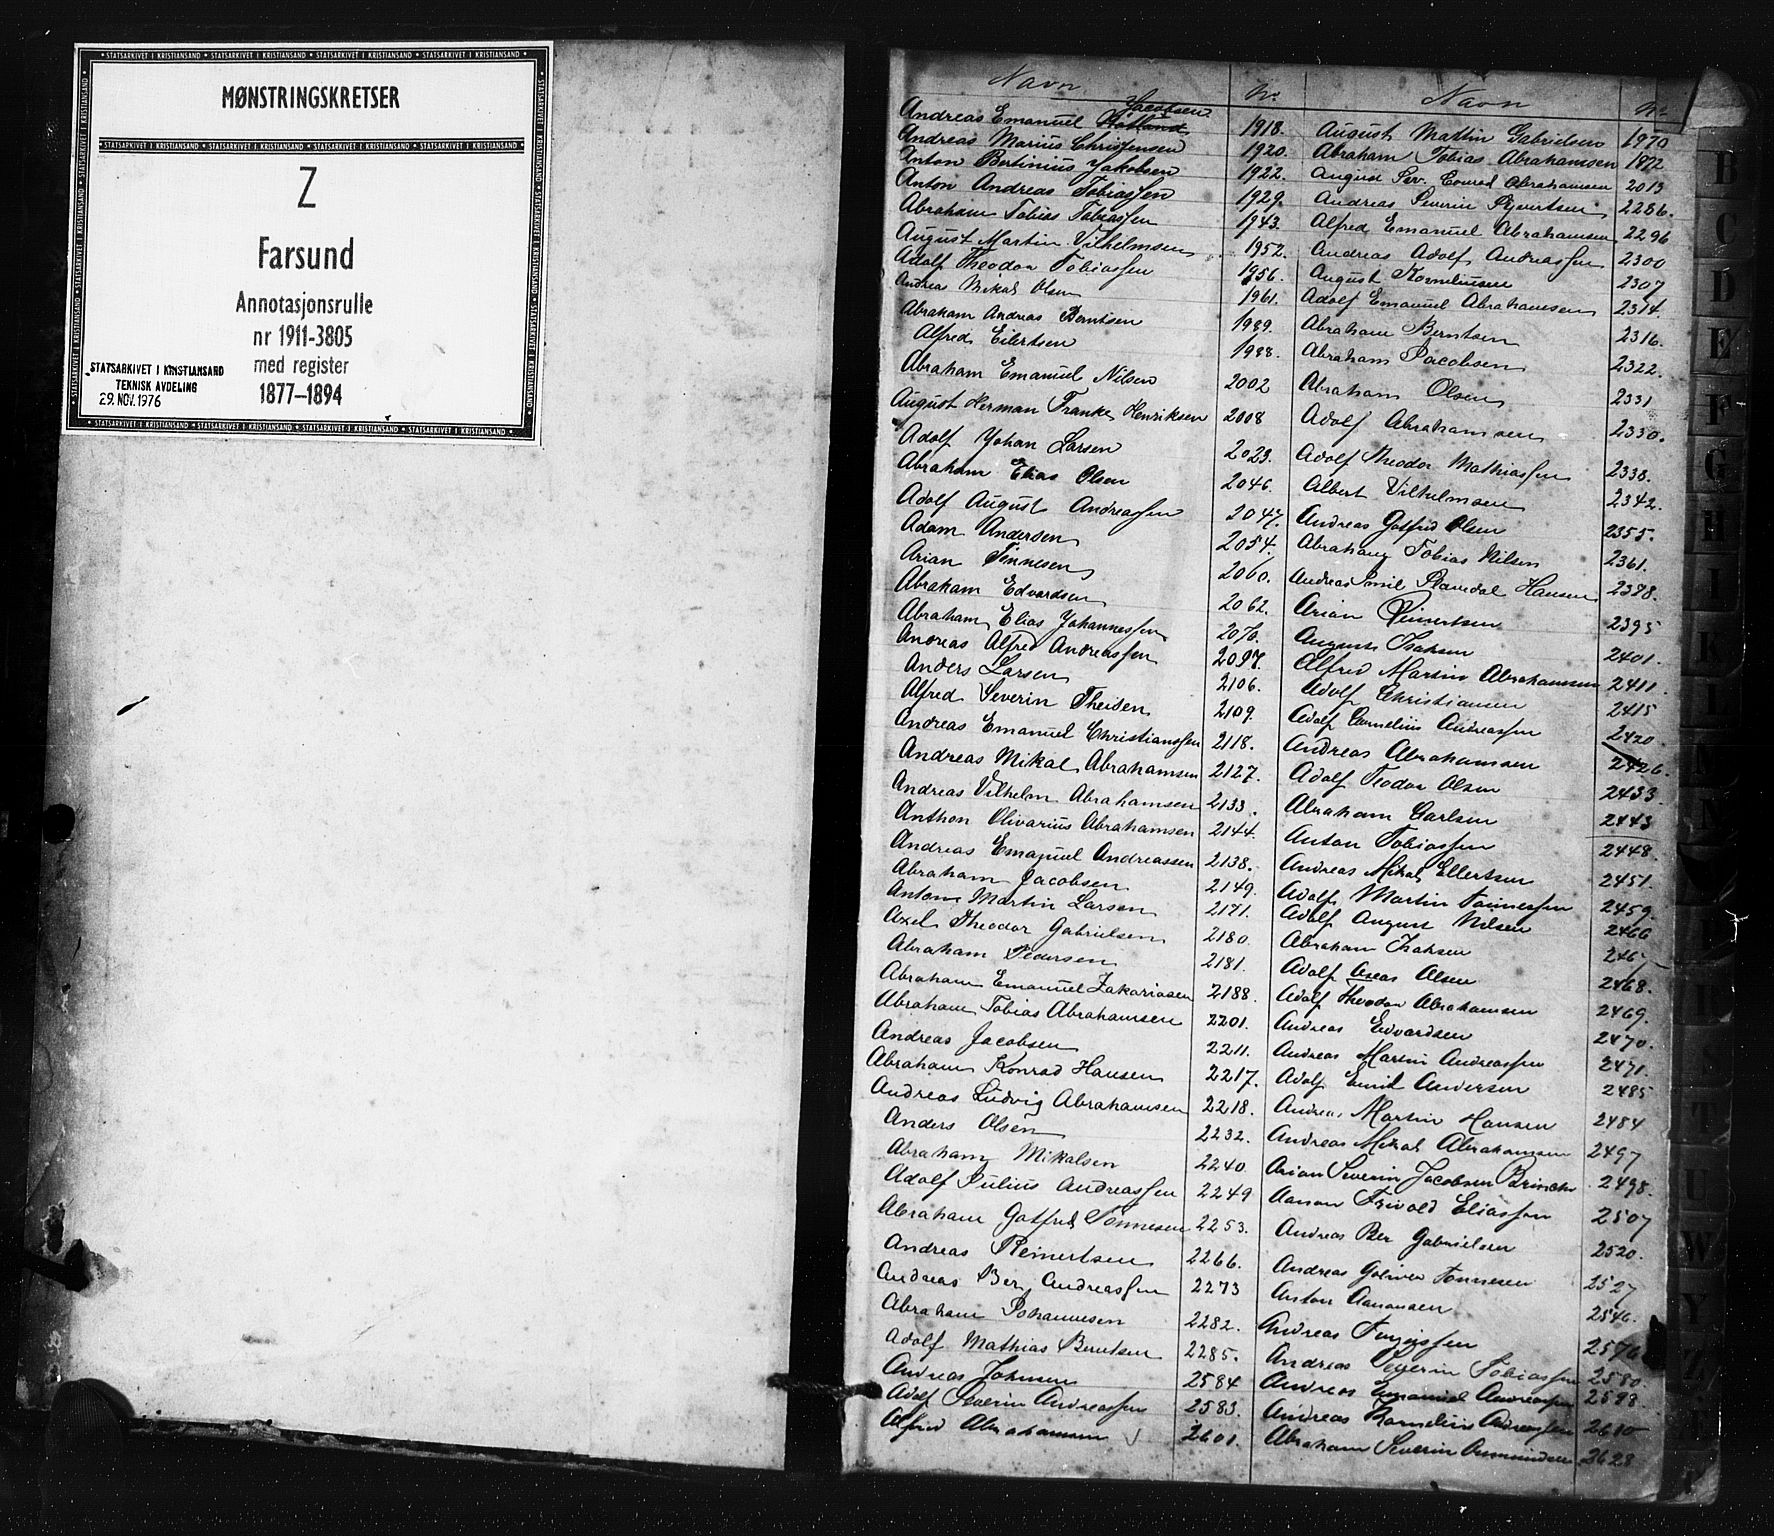 STATSARKIVET I KRISTIANSAND
MØNSTRINGSKRETSER
STATSARKIVET I KRISTIANSAND
Z
Farsund
Annotasjonsrulle
nr 1911-3805
med register
1877–1894
STATSARKIVET I KRISTIANSAND
TEKNISK AVDELING
29. NOV. 1976
STATSARKIVET I KRISTIANSAND
Navn No
Andreas Emanuel Jacobsen 1918.
Andreas Marius Christensen 1920.
Anton Bertinius Jakobsen 1922.
Anton Andreas Tobiassen 1929.
Abraham Tobias Tobiassen 1943.
August Martin Vilhelmsen 1952.
Adolf Theodor Tobiassen 1956.
Andreas Mikal Olsen 1961.
Abraham Andreas Berntsen 1989.
Alfred Eilertsen 1988.
Abraham Emanuel Nilsen 2002
August Herman Franke Henriksen 2008
Adolf Johan Larsen 2023.
Abraham Elias Olsen 2046.
Adolf August Andreassen 2047.
Adam Andersen 2054.
Arian Tønnesen 2060.
Abraham Edvardsen 2062.
Abraham Elias Johannessen 2070.
Andreas Alfred Andreassen 2097.
Anders Larsen 2106.
Alfred Severin Theisen 2109.
Andreas Emanuel Christianssen 2118.
Andreas Mikal Abrahamsen 2127.
Andreas Vilhelm Abrahamsen 2133.
Anthon Olivarius Abrahamsen 2144.
Andreas Emanuel Andreassen 2138.
Abraham Jacobsen 2149.
Anton Martin Larsen 2171.
Axel Theodor Gabrielsen 2180.
Abraham Pedersen 2181.
Abraham Emanuel Zakariasen 2188.
Abraham Tobias Abrahamsen 2201.
Andreas Jacobsen 2211.
Abraham Konrad Hansen 2217.
Andreas Ludvig Abrahamsen 2218.
Anders Olsen 2232.
Abraham Mikalsen 2240.
Adolf Julius Andreassen 2249
Abraham Gotfred Tønnesen 2253.
Andreas Reinertsen 2266.
Andreas Ber Andreassen 2273
Abraham Johannesen 2282.
Adolf Mathias Berntsen 2285.
Andreas Johnsen 2584
Adolf Severin Andreassen 2583.
Alfred Abrahamsen 2601.
Navn No
August Martin Gabrielsen 1970
Abraham Tobias Abrahamsen 1872
August Sev. Conrad Abrahamsen 2013
Andreas Severin Syvertsen 2286.
Alfred Emanuel Abrahamsen 2296
Andreas Adolf Andreassen 2300
August Korneliusen 2307
Adolf Emanuel Abrahamsen 2314.
Abraham Berntsen 2316.
Abraham Jacobsen 2322.
Abraham Olsen 2331
Adolf Abrahamsen 2330.
Adolf Theodor Mathiassen 2338.
Albert Vilhelmsen 2342.
Andreas Gotfred Olsen 2355.
Abraham Tobias Nilsen 2361.
Andreas Emil Hansen 2378.
Arian Reinertsen 2395
August Isaksen 2401.
Alfred Martin Abrahamsen 2411.
Adolf Christiansen 2415
Adolf Cornelius Andreassen 2420
Andreas Abrahamsen 2426.
Adolf Teodor Olsen 2433.
Abraham Carlsen 2443
Anton Tobiassen 2448.
Andreas Mikal Ellertsen 2451.
Adolf Martin Tønnessen 2459.
Adolf August Nilsen 2466
Abraham Isaksen 2467
Adolf Olsen 2468.
Adolf Theodor Abrahamsen 2469.
Andreas Edvardsen 2470.
Andreas Martin Andreassen 2471.
Adolf Emil Andersen 2485
Andreas Martin Hansen 2484
Andreas Mikal Abrahamsen 2497
Arian Severin Jacobsen 2498.
Aanon Trivold Eliassen 2507
Andreas Ber Gabrielsen 2520.
Andreas Tønnesen 2527
Anton Aanonsen 2546.
Andreas 2576
Andreas Severin Tobiassen 2580.
Andreas Emanuel Andreassen 2598.
Andreas Kornelius Andreassen 2610
Abraham Severin 2628
B
C
D
E
F
G
H
I
K
L
M
R
S
T
U
W
Y
Z